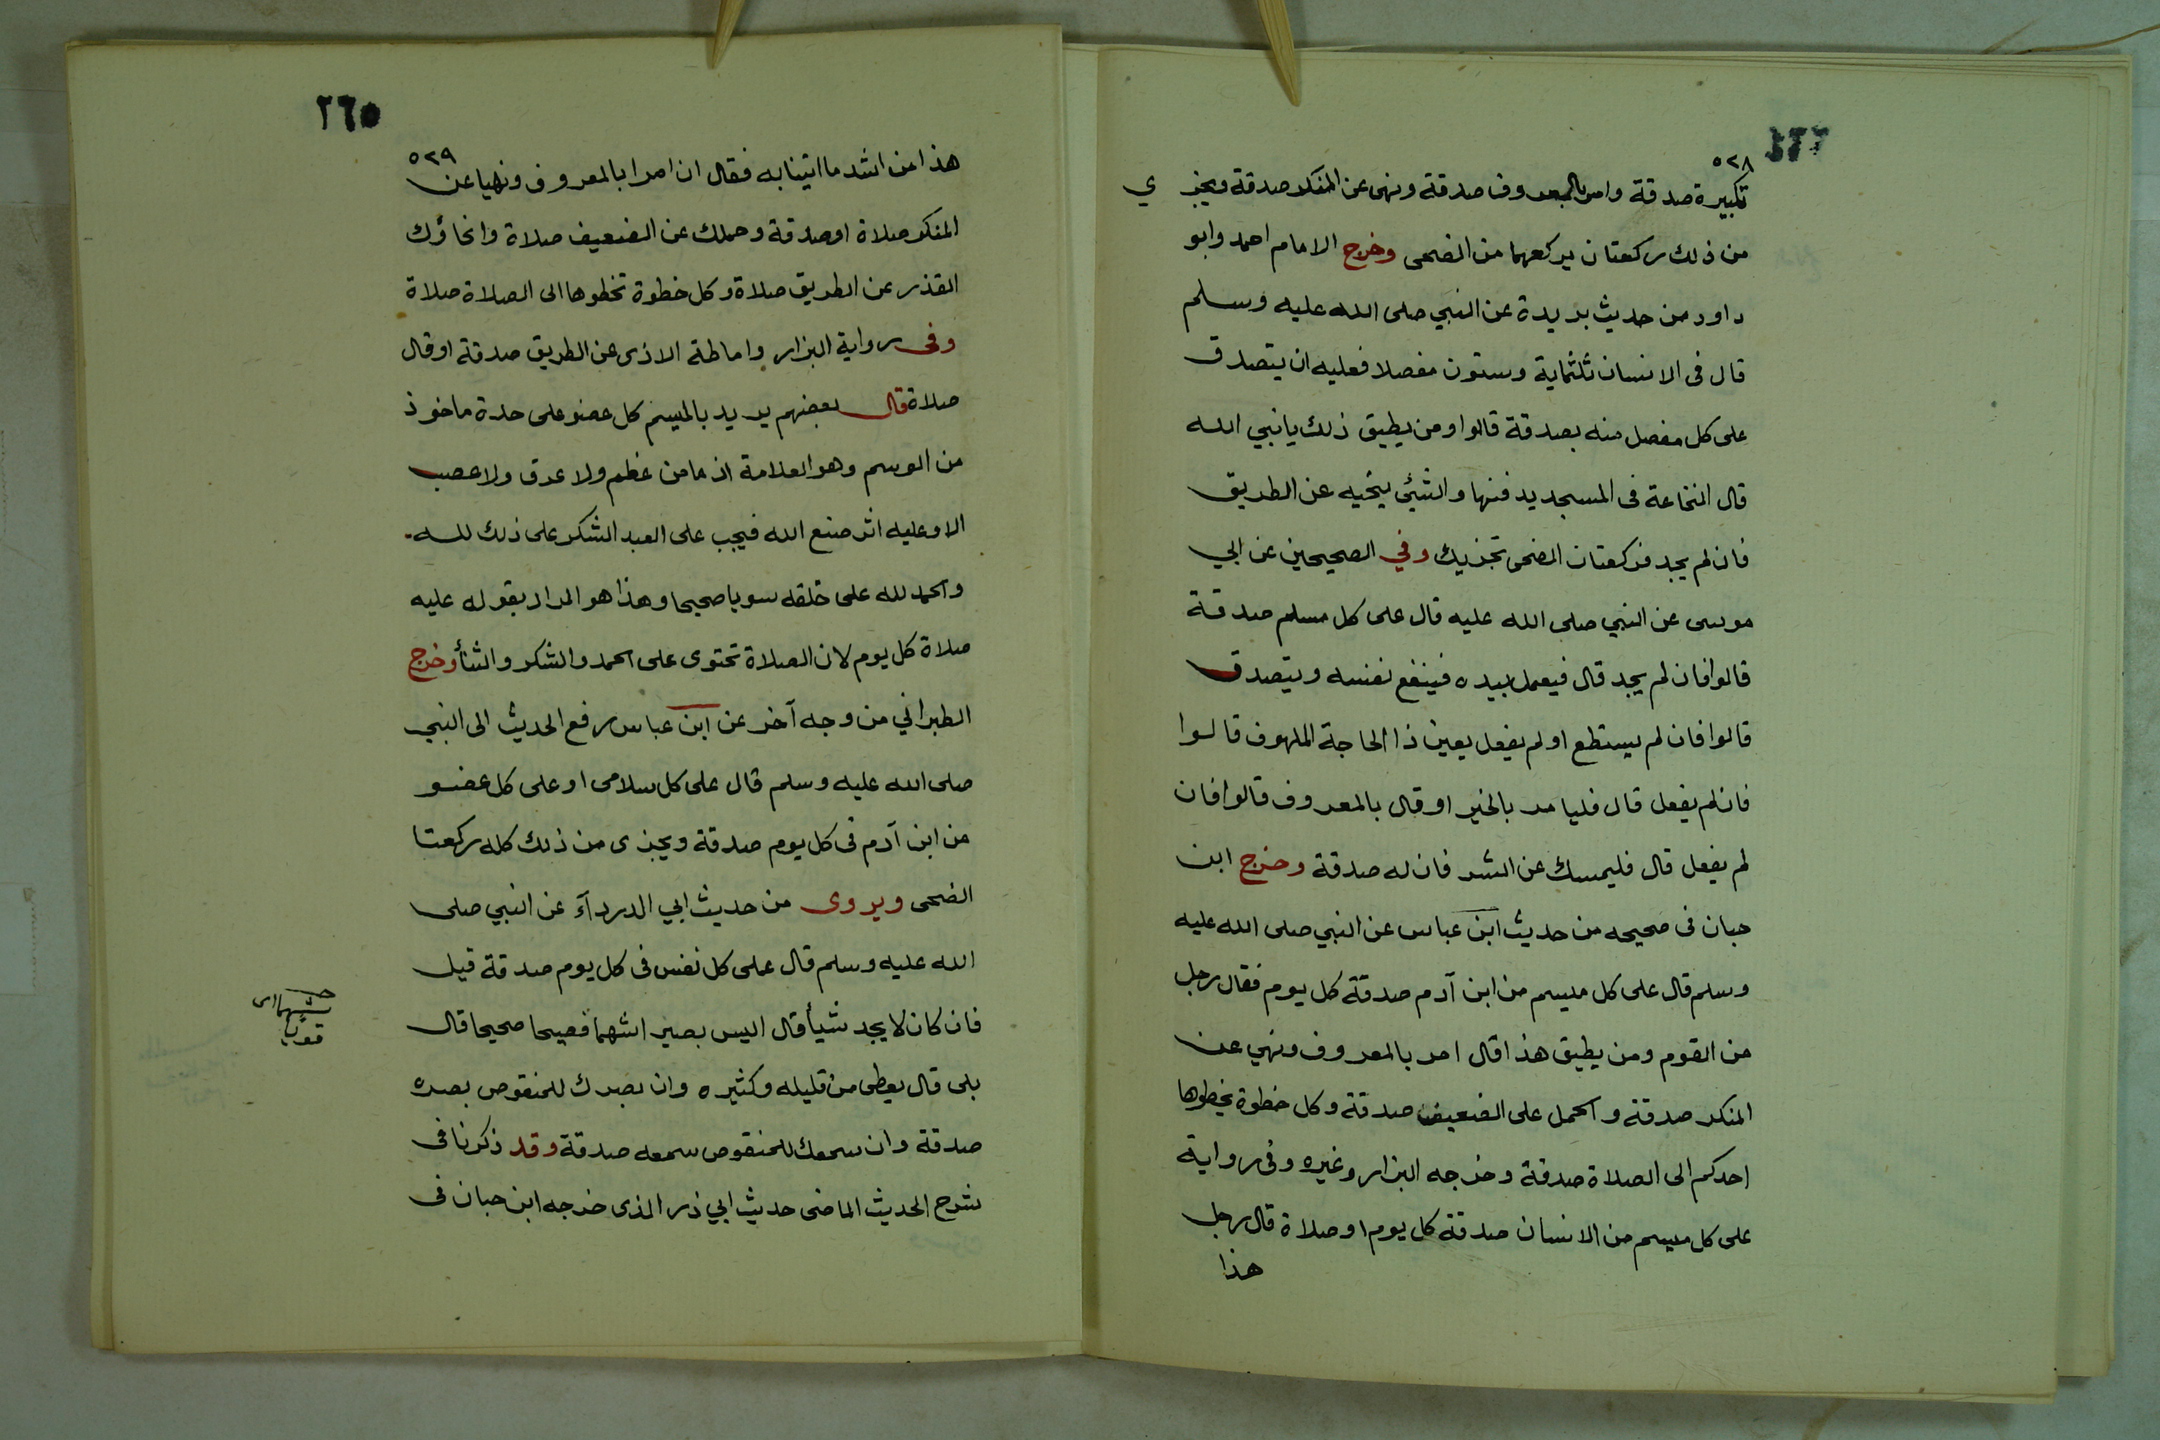 ٥٢٨
تكبيرة صدقة وامر بالمعروف صدقة ونهي عن المنكر صدقة ويجزي
من ذلك ركعتان يركعهما من الضحى وخرج الامام احمد وابو
داود من حديث بريدة عن النبي صلى الله عليه وسلم
قال فى الانسان ثلثماية وستون مفصلا فعليه ان يتصدق
على كل مفصل منه بصدقة قالوا ومن يطيق ذلك يا نبي الله
قال النخاعة فى المسجد يدفنها والشئي ينحيه عن الطريق
فان لم يجد فركعتان الضحى تجزيك وفي الصحيحين عن ابي
موسى عن النبي صلى الله عليه قال على كل مسلم صدقة
قالوا فان لم يجد قال فيعمل بيده فينفع نفسه ويتصدق
قالوا فان لم يستطع او لم يفعل يعين ذا الحاجة الملهوف قالوا
فان لم يفعل قال فليامر بالخير او قال بالمعروف قالوا فان
لم يفعل قال فليمسك عن الشر فان له صدقة وخرج ابن
حبان فى صحيحه من حديث ابن عباس عن النبي صلى الله عليه
وسلم قال على كل ميسم من ابن آدم صدقة كل يوم فقال رجل
من القوم ومن يطيق هذا قال امر بالمعروف ونهي عن
المنكر صدقة والحمل على الضعيف صدقة وكل خطوة يخطوها
احدكم الى الصلاة صدقة وخرجه البزار وغيره وفى رواية
على كل ميسم من الانسان صدقة كل يوم او صلاة قال رجل
هذا
٢٦٥
٥٢٩
هذا من اشد ما اتينا به فقال ان امرا بالمعروف ونهيا عن
المنكر صلاة او صدقة وحملك عن الضعيف صلاة وانحاؤك
القذر عن الطريق صلاة وكل خطوة تخطوها الى الصلاة صلاة
وفى رواية البزار واماطة الاذى عن الطريق صدقة او قال
صلاة قال بعضهم يريد بالميسم كل عضو على حدة ماخوذ
من الوسم وهو العلامة اذ ما من عظم ولا عرق ولا عصب
الا وعليه اثر صنع الله فيجب على العبد الشكر على ذلك لله
والحمد لله على خلقه سويا صحيحا وهذا هو المراد بقوله عليه
صلاة كل يوم لان الصلاة تحتوى على الحمد والشكر والثنأ وخرج
الطبراني من وجه آخر عن ابن عباس رفع الحديث الى النبي
صلى الله عليه وسلم قال على كل سلامى او على كل عضو
من ابن آدم فى كل يوم صدقة ويجزى من ذلك كله ركعتا
الضحى ويروى من حديث ابي الدردآء عن النبي صلى
الله عليه وسلم قال على كل نفس فى كل يوم صدقة قيل
فان كان لا يجد شيأ قال اليس بصير اشهما فصيحا صحيحا قال
بلى قال يعطى من قليله وكثيره وان بصرك للمنقوص بصره
صدقة وان سمعك للمنقوص سمعه صدقة وقد ذكرنا فى
شرح الحديث الماضى حديث ابي ذر الذى خرجه ابن حبان فى